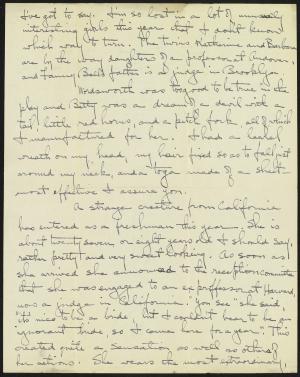 I've got to say. I'm so lost in a lot of unusually
interesting girls this year that I don't know
which way to turn. The twins Katharine and Barbara
are by the way daughters of a professor at Andover,
and Fanny Bell's father is a judge in Brooklyn.
Wordsworth was too good to be true in the
play and Betty was a dream of a devil with a
tail, little red horns, and a pitch fork, all of which
I manufactured for her. I had a laurel
wreath on my head, my hair fixed so as to fall just
around my neck, and a toga made of a sheet
most effective I assure you.
A strange creature from California
has entered as a freshman this year. She is
about twenty seven or eight years old I should say,
rather pretty and very sweet looking. As soon as
she arrived she announced to the reception committee
that she was engaged to an ex professor at Harvard,
now a judge in California: "you see" she said,
"it's nice to be a bride, but I couldn't bear to be an
ignorant bride, so I came here for a year." This
created quite a sensation as well as others of
her actions. She wears the most extraordinary,